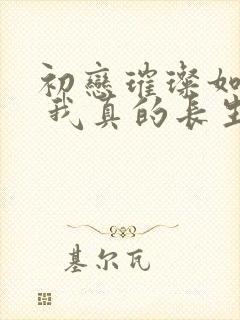 初戀璀璨如
我真的長生
基尔瓦